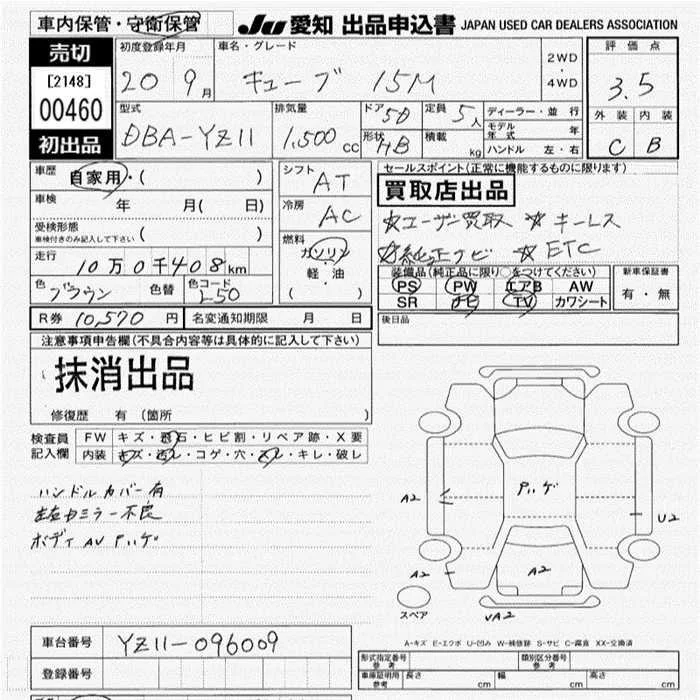 車内保管・守衛保管
JU 愛知 出品申込書 JAPAN USED CAR DEALERS ASSOCIATION
売切
[2148]
00460
初出品
初度登録年月 20 9月
車名・グレード キューブ 15M
2WD・4WD
評価点 3.5
型式 DBA-YZ11
排気量 1,500cc
ドア 5D
形状 HB
定員 5人
積載 kg
ディーラー・並行
モデル年式 年
ハンドル 左・右
外装 C
内装 B
車歴 自家用・( )
車検 年 月( 日)
受検形態 ( )
車検付きのみ記入して下さい
走行 10万0千408km
色 ブラウン 色替 色コード L50
R券 10,570円 名変通知期限 月 日
シフト AT
冷房 AC
燃料 ガソリン・軽油 ( )
セールスポイント(正常に機能するものに限ります)
買取店出品
☆ユーザー買取 ☆キーレス
☆純正ナビ ☆ETC
装備品(純正品に限り○をつけてください)
PS PW エアB AW
SR ナビ TV カワシート
新車保証書 有・無
後日品
注意事項申告欄(不具合内容等は具体的に記入して下さい)
抹消出品
修復歴 有 (箇所 )
検査員記入欄
FW キズ・飛石・ヒビ割・リペア跡・X要
内装 キズ・汚レ・コゲ・穴・スレ・キレ・破レ
ハンドルカバー有
左右ドミラー不良
ボディAV Pハゲ
Pハゲ
A2
U2
A2
A2
スペア
A-キズ E-エクボ U-凹み W-補修跡 S-サビ C-腐食 XX-交換済
車台番号 YZ11-096009
登録番号
形式指定番号 参考
類別区分番号 参考
車庫証明用 参考 長さ cm 幅 cm 高さ cm